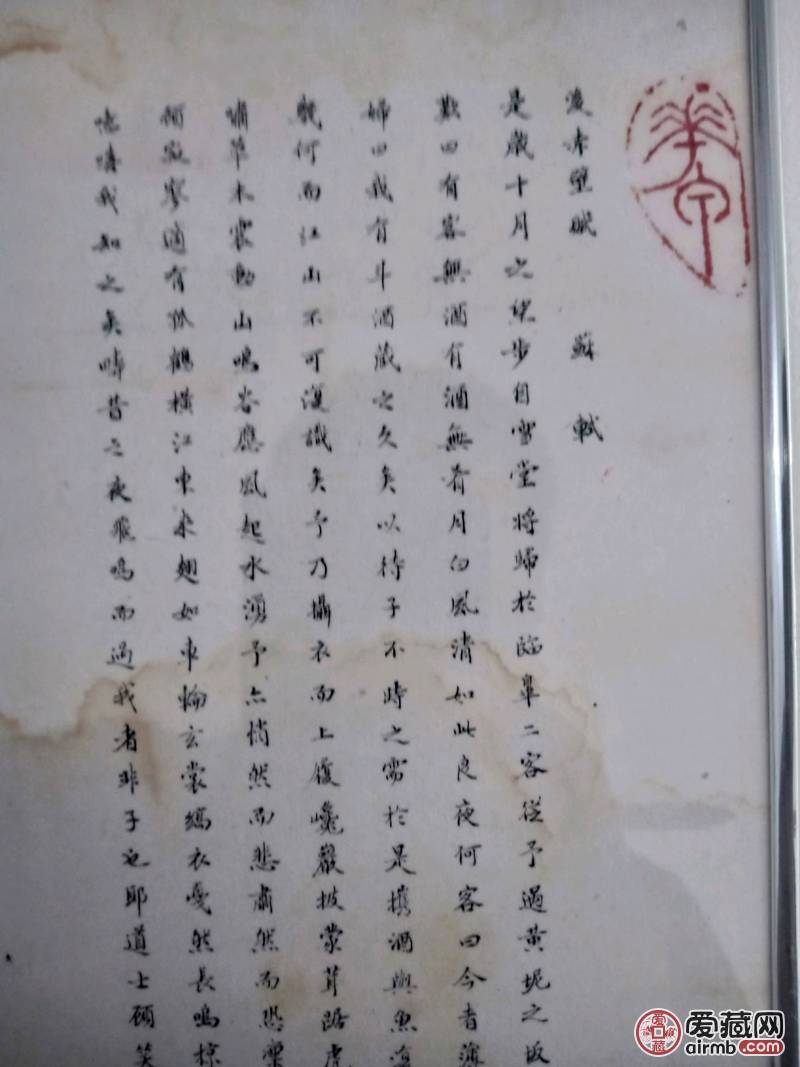 後赤壁賦 蘇軾
是歲十月之望步自雪堂將歸於臨皋二客從予過黃坭之坂
歎曰有客無酒有酒無肴月白風清如此良夜何客曰今者薄
婦曰我有斗酒藏之久矣以待子不時之需於是攜酒與魚復
幾何而江山不可復識矣予乃攝衣而上履巉巖披蒙茸踞虎
嘯草木震動山鳴谷應風起水湧予亦悄然而悲肅然而恐凜
顧寂寥適有孤鶴橫江東來翅如車輪玄裳縞衣戛然長鳴掠
噫嘻我知之矣疇昔之夜飛鳴而過我者非子也耶道士顧笑
爱藏网
airmb.com